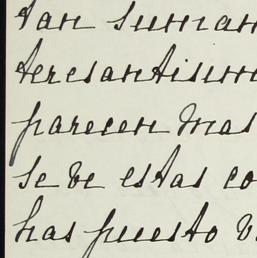 tan suman
teresantisim
parecen mas
se ve estas co
has puesto v